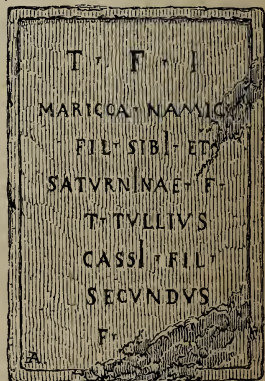 T · F · I
MARICCA · NAMIC
FIL · SIBI · ET
SATVRNINAE · F ·
T · TVLLIVS
CASSI · FIL ·
SECVNDVS
F ·